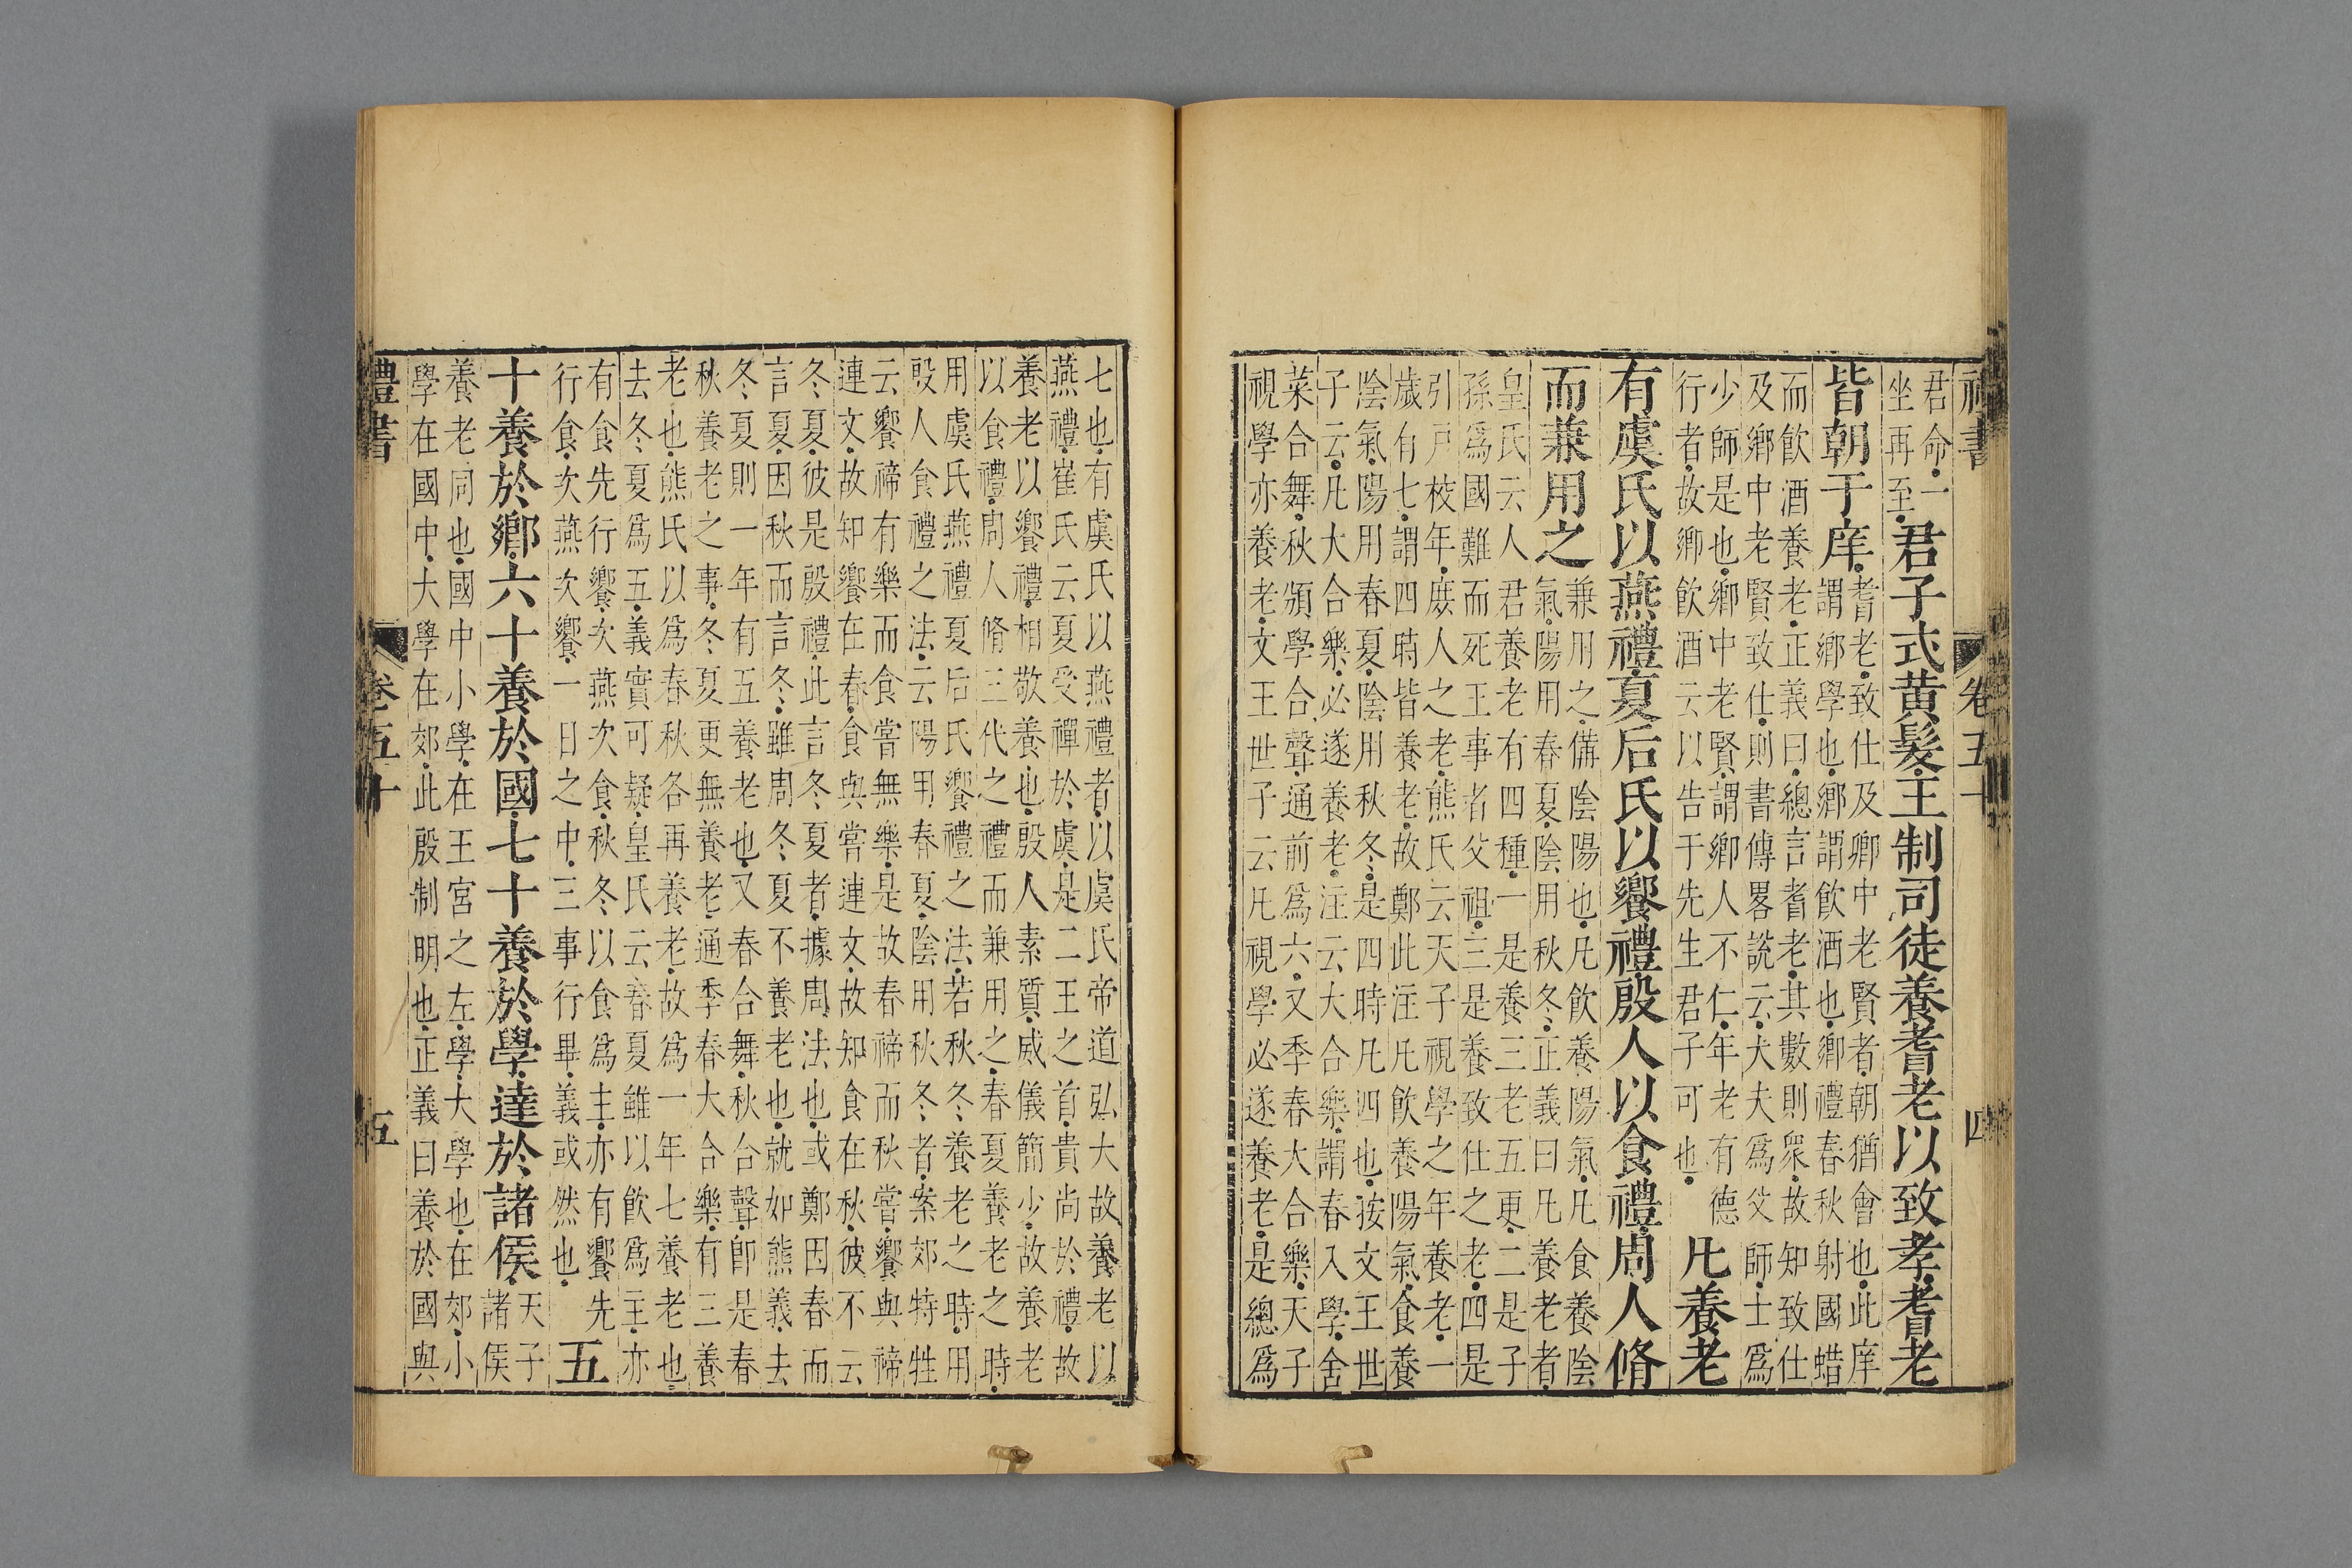 禮書
卷五十
四
君命一
坐再至
君子式黄髮王制司徒養耆老以致孝耆老
皆朝于庠
耆老致仕及鄉中老賢者朝猶會也此庠
謂鄉學也鄉謂飲酒也鄉禮春秋射國蜡
而飲酒養老正義曰總言耆老其數則衆故知致仕
及鄉中老賢致仕則書傳畧說云大夫為父師士爲
少師是也鄉中老賢謂鄉人不仁年老有德
行者故鄉飲酒云以告于先生君子可也
凡養老
有虞氏以燕禮夏后氏以饗禮殷人以食禮周人脩
而兼用之
兼用之備陰陽也凡飲養陽氣凡食養陰
氣陽用春夏陰用秋冬正義曰凡養老者
皇氏云人君養老有四種一是養三老五更二是子
孫爲國難而死王事者父祖三是養致仕之老四是
引戸校年庶人之老熊氏云天子視學之年養老一
歲有七謂四時皆養老故鄭此注凡飲養陽氣食養
陰氣陽用春夏陰用秋冬是四時凡四也按文王世
子云凡大合樂必遂養老注云大合樂謂春入學舍
菜合舞秋頒學合聲通前爲六又季春大合樂天子
視學亦養老文王世子云凡視學必遂養老是總爲
七也有虞氏以燕禮者以虞氏帝道弘大故養老以
燕禮崔氏云夏受禪於虞是二王之首貴尚於禮故
養老以饗禮相敬養也殷人素質威儀簡少故養老
以食禮周人脩三代之禮而兼用之春夏養老之時
用虞氏燕禮夏后氏饗禮之法若秋冬養老之時用
殷人食禮之法云陽用春夏陰用秋冬者案郊特牲
云饗禘有樂而食嘗無樂是故春禘而秋嘗饗與禘
連文故知饗在春食與嘗連文故知食在秋彼不云
冬夏彼是殷禮此言冬夏者據周法也或鄭因春而
言夏因秋而言冬雖周冬夏不養老也就如熊義去
冬夏則一年有五養老也又春合舞秋合聲卽是春
秋養老之事冬夏更無養老通季春大合樂有三養
老也熊氏以爲春秋各再養老故爲一年七養老也
去冬夏爲五義實可疑皇氏云春夏雖以飲爲主亦
有食先行饗次燕次食秋冬以食爲主亦有饗先
行食次燕次饗一日之中三事行畢義或然也
五
十養於鄉六十養於國七十養於學達於諸侯
天子
諸侯
養老同也國中小學在王宮之左學大學也在郊小
學在國中大學在郊此殷制明也正義曰養於國與
禮書
卷五十
五